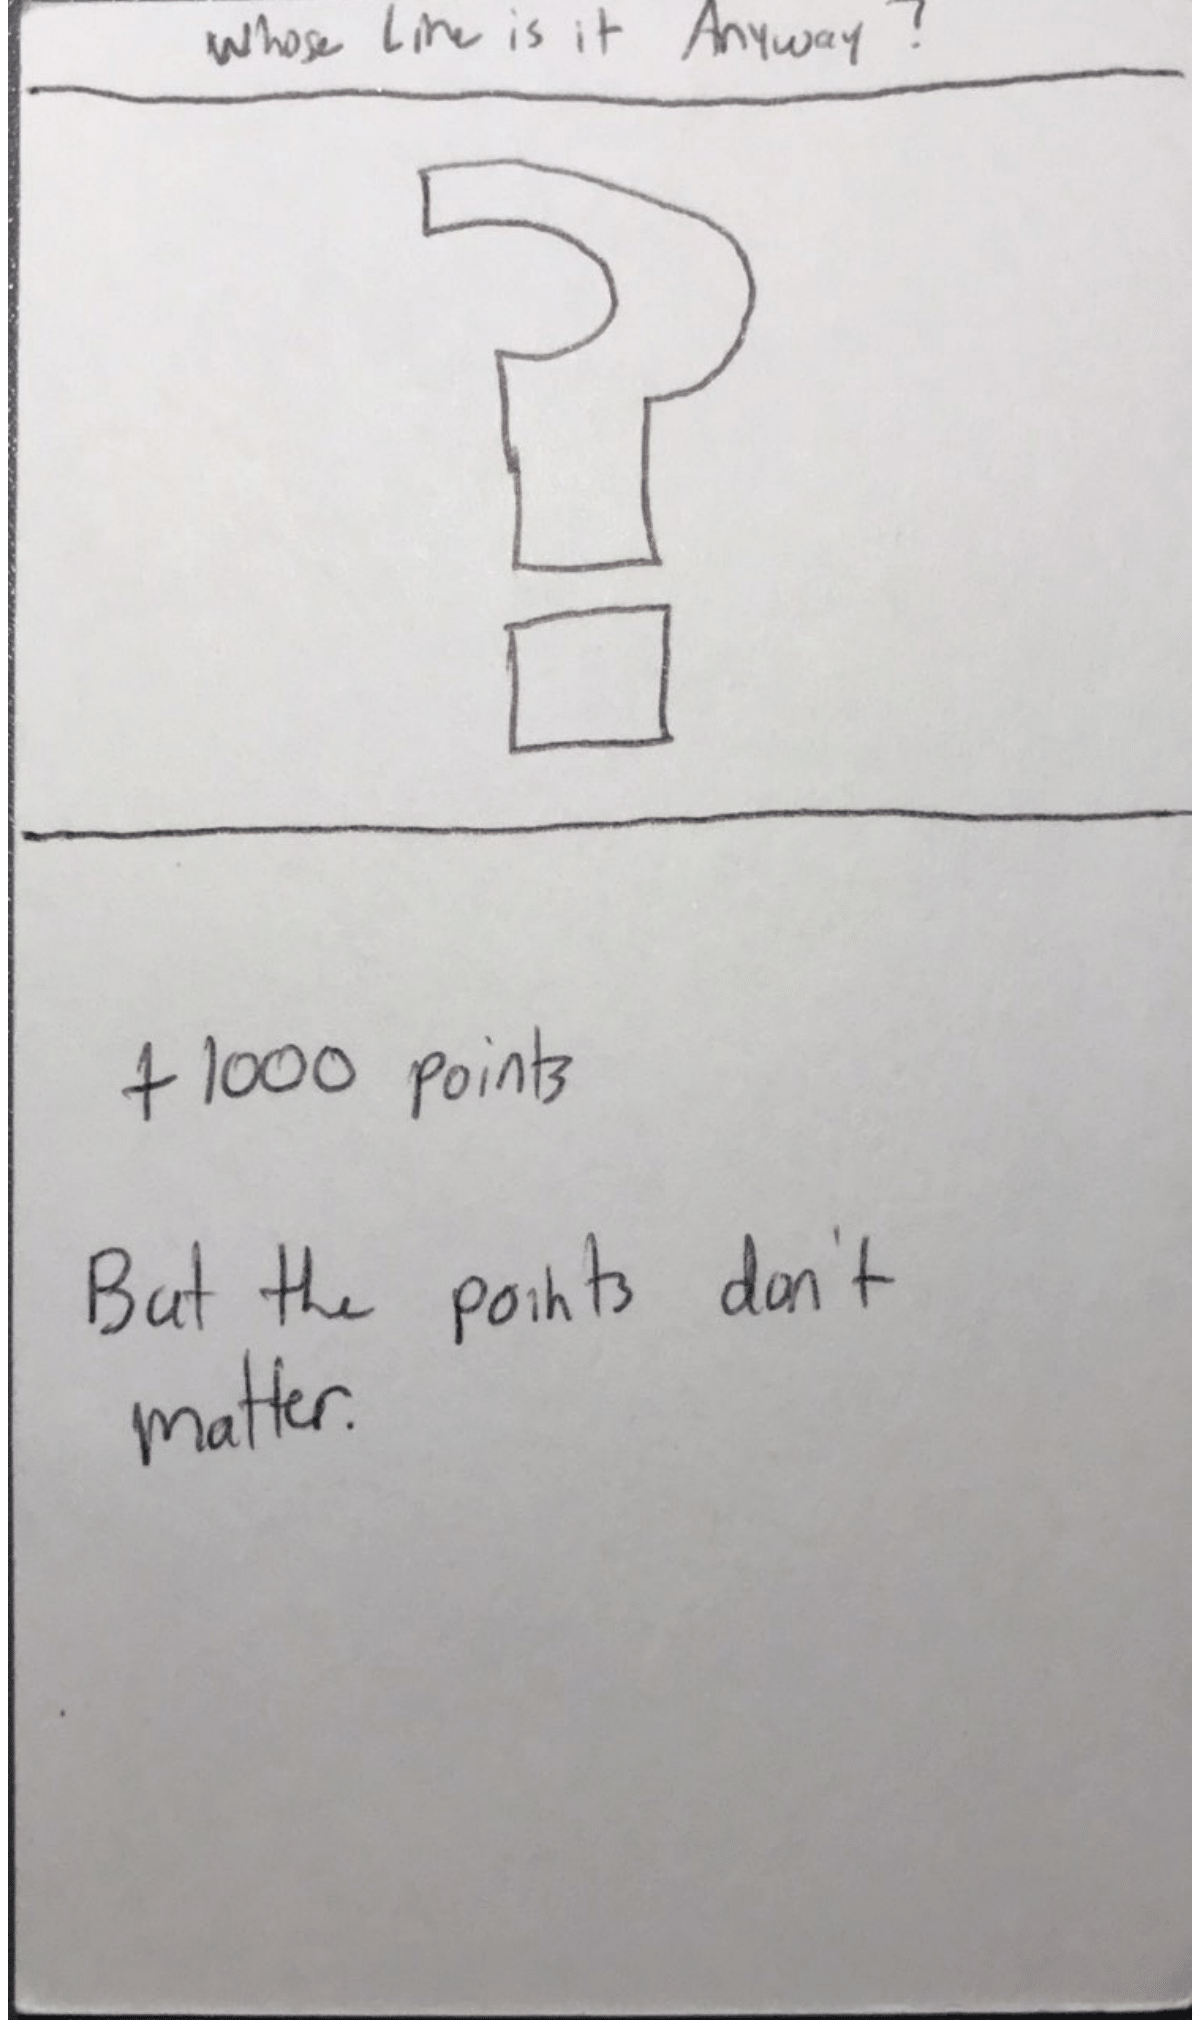 Whose Line is it Anyway?
?
+1000 points
But the points don't
matter.